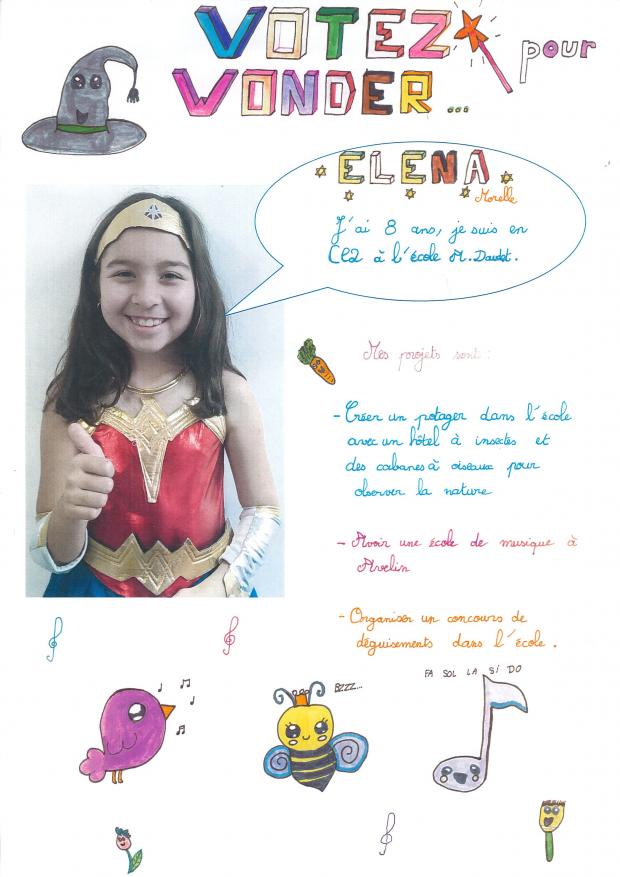 VOTEZ pour
WONDER...
ELENA
Morelle
J'ai 8 ans, je suis en
CE2 à l'école M. Daudet.
Mes projets sont :
- Créer un potager dans l'école
avec un hôtel à insectes et
des cabanes à oiseaux pour
observer la nature
- Avoir une école de musique à
Avelin
- Organiser un concours de
déguisements dans l'école.
BZZZ...
FA SOL LA SI DO